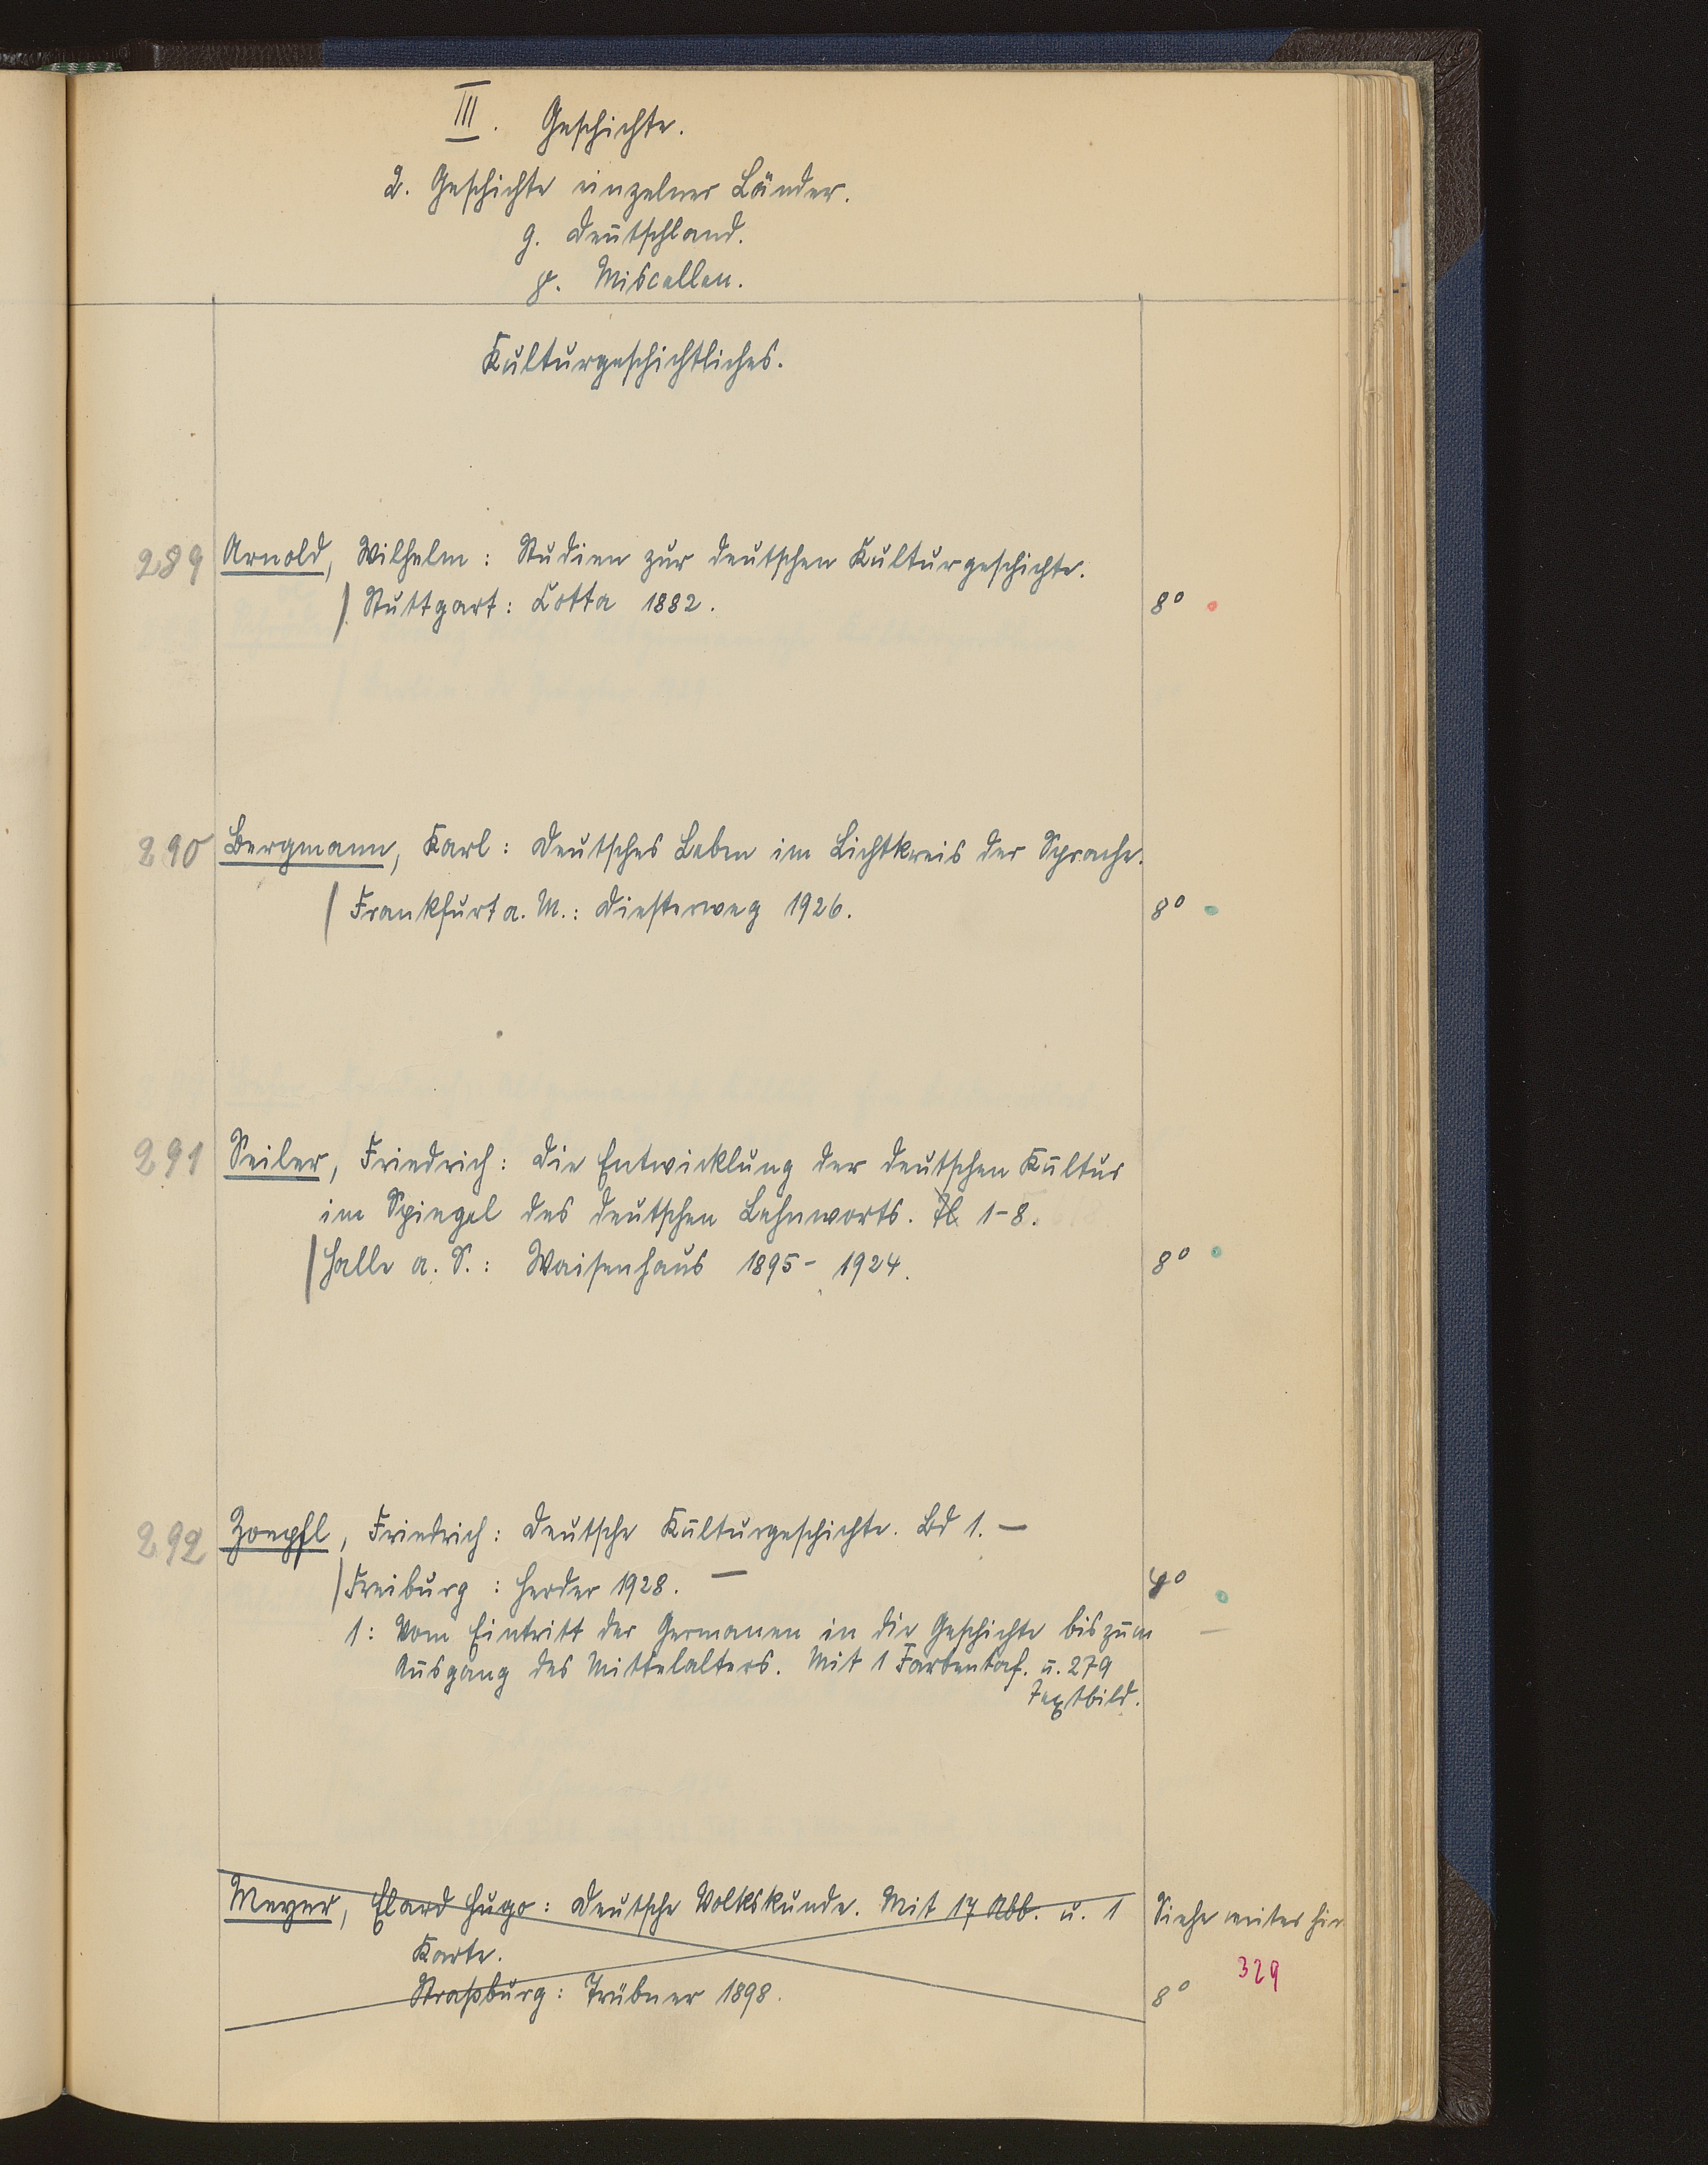 III. Geschichte.
2. Geschichte einzelner Länder.
g. Deutschland.
γ. Miscellen.
Kulturgeschichtliches.
289 Arnold, Wilhelm: Studien zur deutschen Kulturgeschichte.
Stuttgart: Cotta 1882. 8°
290 Bergmann, Karl: Deutsches Leben im Lichtkreis der Sprache.
Frankfurt a. M.: Diesterweg 1926. 8°
291 Seiler, Friedrich: Die Entwicklung der deutschen Kultur
im Spiegel des deutschen Lehnworts. Tl. 1-8.
Halle a. S.: Waisenhaus 1895-1924. 8°
292 Zoepfl, Friedrich: Deutsche Kulturgeschichte. Bd 1. —
Freiburg: Herder 1928. — 4°
1: Vom Eintritt der Germanen in die Geschichte bis zum
Ausgang des Mittelalters. Mit 1 Farbentaf. u. 279
Textbild.
Meyer, Elard Hugo: Deutsche Volkskunde. Mit 17 Abb. u. 1 Siehe weiter hin
Karte. 329
Straßburg: Trübner 1898. 8°